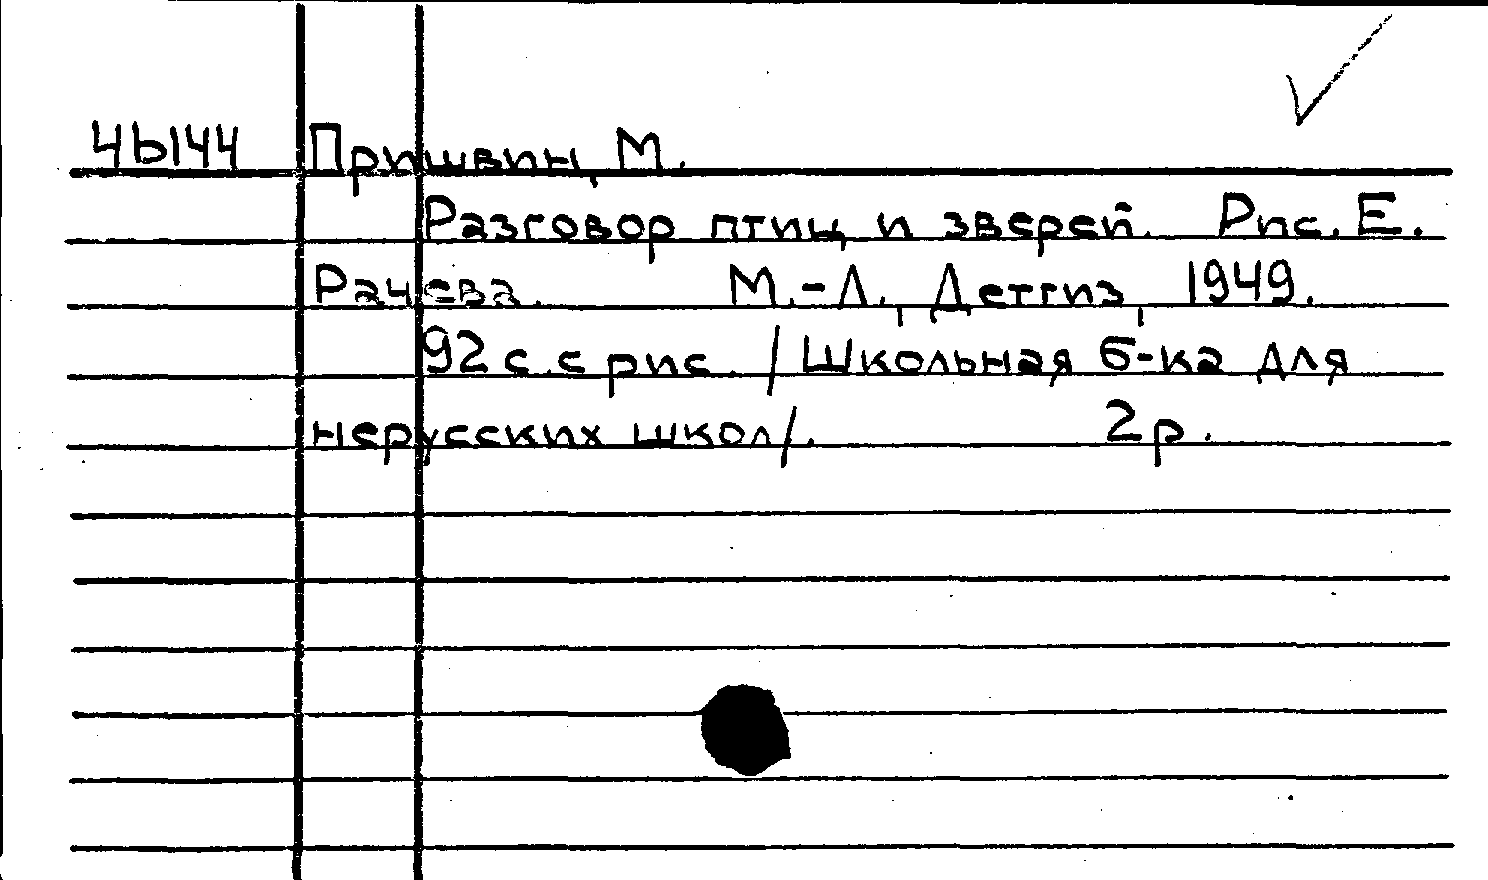 4Ы44 Пришвин, М.
Разговор птиц и зверей. Рис. Е.
Рачева. М.-Л., Детгиз, 1949.
92 с. с рис. /Школьная б-ка для
нерусских школ/. 2р.